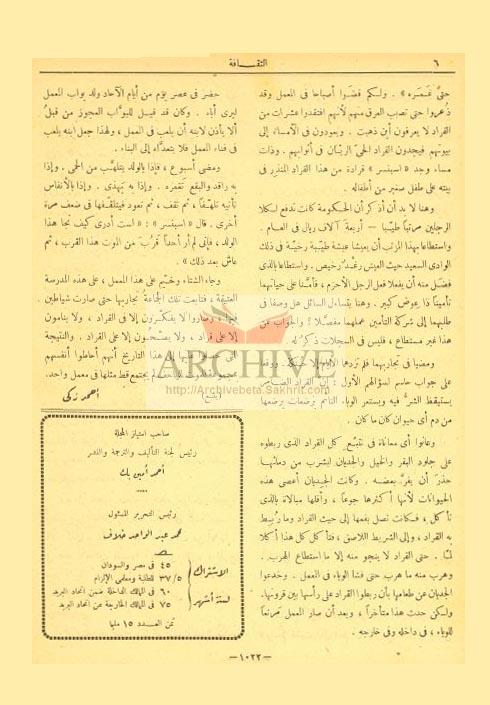 ٦
الثقافة
حتى غمره » . ولكم قضوا أصباحا فى المعمل وقد
ذعروا حتى تصبب العرق منهم لأنهم افتقدوا عشرات من
القراد لا يعرفون أين ذهبت . ويعودون فى الأمساء إلى
بيوتهم فيجدون القراد الحى الريان فى أثوابهم . وذات
مساء وجد « اسبنسر » قرادة من هذا القراد المنذر فى
بيته على طفل صغير من أطفاله .
وهنا لا بد أن أذكر أن الحكومة كانت تدفع لكلا
الرجلين مرتبا طيبا — أربعة آلاف ريال فى العام .
واستطاعا بهذا المرتب أن يعيشا عيشة طيبة رخية فى ذلك
الوادى السعيد حيث العيش رغد رخيص . واستطاعا بالذى
فضل منه أن يفعلا فعل الرجل الأحزم ، فأمنا على حياتهما
تأمينا ذا عوض كبير . وهنا يتساءل السائل هل وصفا فى
طلبهما إلى شركة التأمين عملهما مفصلا ؟ والجواب عن
هذا غير مستطاع ، فليس فى السجلات ذكر له
ومضيا فى تجاربهما فلم تزدها الأيام إلا . ووقعا
على جواب حاسم لسؤالهم الأول : إن القراد
يستيقظ الشر فيه ويستعر الوباء النائم برضعات يرضعها
من دم أى حيوان كان ما كان .
وعانوا أى معاناة فى تتبع كل القراد الذى ربطوه
على جلود البقر والخيل والجديان ليشرب من دمائها
حذر أن يفر بعضه . وكانت الجديان أعصى هذه
الحيوانات لأنها أكثرها جوعا ، وأقلها مبالاة بالذى
تأكل ، فكانت تصل بفمها إلى حيث القراد وما ربط
به القراد ، وإلى الشريط اللاصق ، فتأكل كل هذا أكلا
لما . حتى القراد لا ينجو منه إلا ما استطاع الهرب .
وهرب منه ما هرب حتى فشا الوباء فى المعمل . وخدعوا
الجديان عن طعامها بأن ربطوا القراد على رأسها بين قرونها.
ولكن حدث هذا متأخرا ، وبعد أن صار المعمل مرتعا
للوباء ، فى داخله وفى خارجه .
حضر فى عصر يوم من أيام الآحاد ولد بواب المعمل
ليرى أباه . وكان قد قيل للبواب العجوز من قبل
ألا يأذن لابنه أن يلعب فى المعمل ، ولهذا جعل ابنه يلعب
فى فناء المعمل فلا يتعداه إلى البناء .
ومضى أسبوع ، فإذا بالولد يتلهب من الحمى . وإذا
به راقد والبقع تغمره . وإذا به يهذى . وإذا بالأنفاس
تأتيه تلهفا ، ثم تقف ، ثم تعود فيتلقفها فى ضعف مرة
أخرى . قال « اسبنسر » : « لست أدرى كيف نجا هذا
الولد ، فإنى لم أر أحدا قرب من الموت هذا القرب ، ثم
عاش بعد ذلك » .
وجاء الشتاء وخيم على هذا المعمل ، على هذه المدرسة
العتيقة ، فتابعت تلك الجماعة تجاربها حتى صارت شياطين .
فيها وصاروا لا يفكرون إلا فى القراد ، ولا ينامون
إلا على قراد ، ولا يصحون إلا على القراد . والنتيجة
التى هذا التاريخ أنهم أحاطوا أنفسهم
يجتمع قط مثلها فى معمل واحد.
( يتبع )
أحمد زكى
ARCHIVE
http://Archivebeta.Sakhrit.com
صاحب امتياز المجلة
رئيس لجنة التأليف والترجمة والنشر
أحمد أمين بك
رئيس التحرير المسئول
محمد عبد الواحد خلاف
الاشتراك
لستة أشهر
٤٥ فى مصر والسودان
٣٧/٥ للطلبة ومعلمى الإلزام
٦٠ فى الممالك الداخلة ضمن اتحاد البريد
٧٥ فى الممالك الخارجة عن اتحاد البريد
ثمن العدد ١٥ مليما
— ١٠٢٢ —